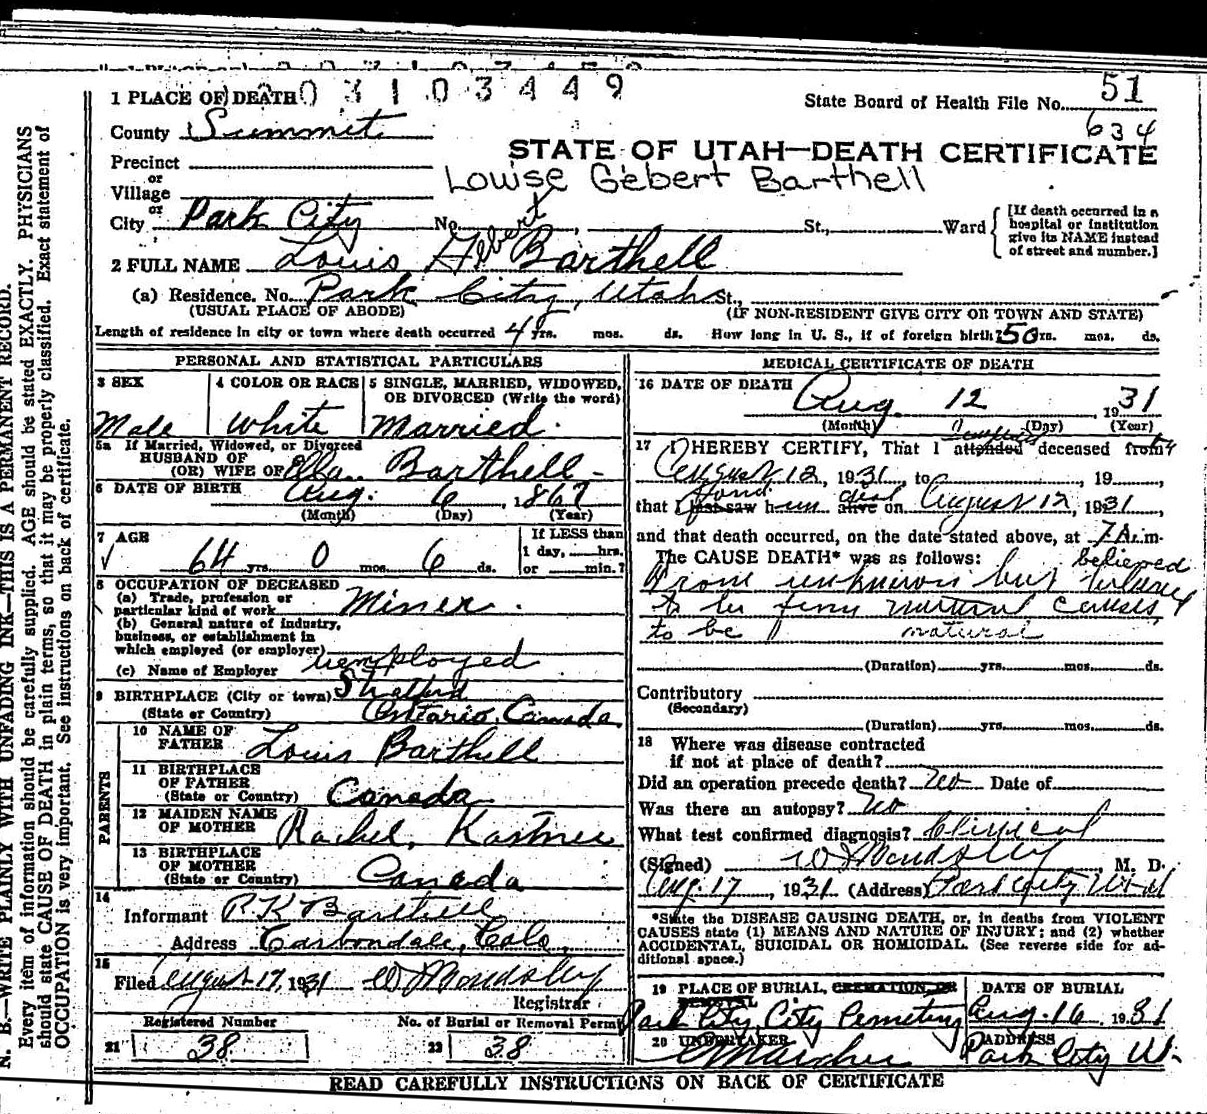 03103449
1 PLACE OF DEATH
State Board of Health File No. 51
County Summit
634
STATE OF UTAH—DEATH CERTIFICATE
Precinct
or
Village
Louise Gebert Barthell
or
City Park City No. St., Ward
[If death occurred in a hospital or institution give its NAME instead of street and number.]
2 FULL NAME Louis Gebert Barthell
(a) Residence. No. Park City, Utah St.,
(USUAL PLACE OF ABODE) (IF NON-RESIDENT GIVE CITY OR TOWN AND STATE)
Length of residence in city or town where death occurred 4 yrs. mos. ds. How long in U. S., if of foreign birth? 50 yrs. mos. ds.
PERSONAL AND STATISTICAL PARTICULARS
3 SEX
Male
4 COLOR OR RACE
White
5 SINGLE, MARRIED, WIDOWED, OR DIVORCED (Write the word)
Married.
5a If Married, Widowed, or Divorced
HUSBAND OF
(OR) WIFE OF Ella Barthell
6 DATE OF BIRTH Aug. 6, 1867
(Month) (Day) (Year)
7 AGE
64 yrs. 0 mos. 6 ds.
If LESS than
1 day, hrs.
or min.?
8 OCCUPATION OF DECEASED
(a) Trade, profession or
particular kind of work Miner.
(b) General nature of industry,
business, or establishment in
which employed (or employer)
(c) Name of Employer unemployed
9 BIRTHPLACE (City or town)
(State or Country) Ontario, Canada
PARENTS
10 NAME OF
FATHER Louis Barthell
11 BIRTHPLACE
OF FATHER
(State or Country) Canada
12 MAIDEN NAME
OF MOTHER Rachel, Kastner
13 BIRTHPLACE
OF MOTHER
(State or Country) Canada
14
Informant P K Barthell
Address Carbondale, Colo.
15
Filed August 17, 1931
Registrar
Registered Number
21 38
No. of Burial or Removal Permit
22 38
MEDICAL CERTIFICATE OF DEATH
16 DATE OF DEATH
Aug. 12, 1931
(Month) (Day) (Year)
17 I HEREBY CERTIFY, That I attended deceased from
August 12, 1931, to , 19 ,
found dead
that I last saw him alive on August 12, 1931,
and that death occurred, on the date stated above, at 7 A. m.
The CAUSE DEATH* was as follows:
believed
From unknown but believed
to be from natural causes,
to be natural
(Duration) yrs. mos. ds.
Contributory
(Secondary)
(Duration) yrs. mos. ds.
18 Where was disease contracted
if not at place of death?
Did an operation precede death? No Date of
Was there an autopsy? no
What test confirmed diagnosis? Clinical
(Signed) , M. D.
Aug. 17, 1931 (Address) Park City Utah
*State the DISEASE CAUSING DEATH, or, in deaths from VIOLENT
CAUSES state (1) MEANS AND NATURE OF INJURY; and (2) whether
ACCIDENTAL, SUICIDAL OR HOMICIDAL. (See reverse side for ad-
ditional space.)
19 PLACE OF BURIAL, CREMATION, OR
REMOVAL
Park City, City Cemetery
DATE OF BURIAL
Aug. 16 1931
20 UNDERTAKER
ADDRESS
Park City Ut.
READ CAREFULLY INSTRUCTIONS ON BACK OF CERTIFICATE
N. B.—WRITE PLAINLY WITH UNFADING INK—THIS IS A PERMANENT RECORD.
Every item of information should be carefully supplied. AGE should be stated EXACTLY. PHYSICIANS
should state CAUSE OF DEATH in plain terms, so that it may be properly classified. Exact statement of
OCCUPATION is very important. See instructions on back of certificate.